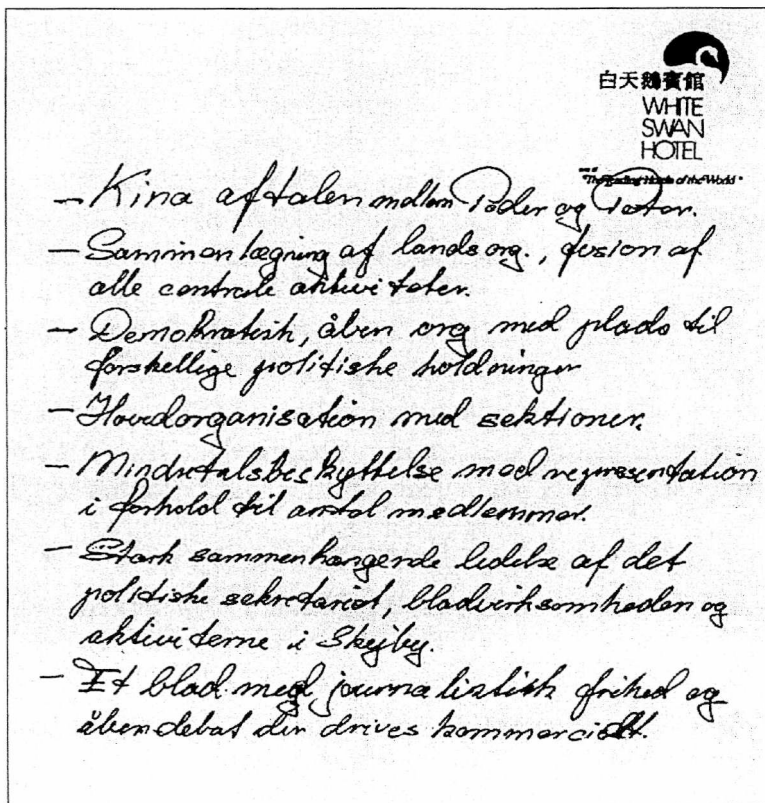 白天鵝賓館
WHITE
SWAN
HOTEL
of the World"
– Kina aftalen mellem Peder og Peter.
– Sammenlægning af landsorg., fusion af
alle centrale aktiviteter.
– Demokratisk, åben org med plads til
forskellige politiske holdninger
– Hovedorganisation med sektioner.
– Mindretalsbeskyttelse med repræsentation
i forhold til antal medlemmer.
– Stærk sammenhængende ledelse af det
politiske sekretariat, bladvirksomheden og
aktiviterne i Skejby.
– Et blad med journalistisk frihed og
åben debat der drives kommercielt.